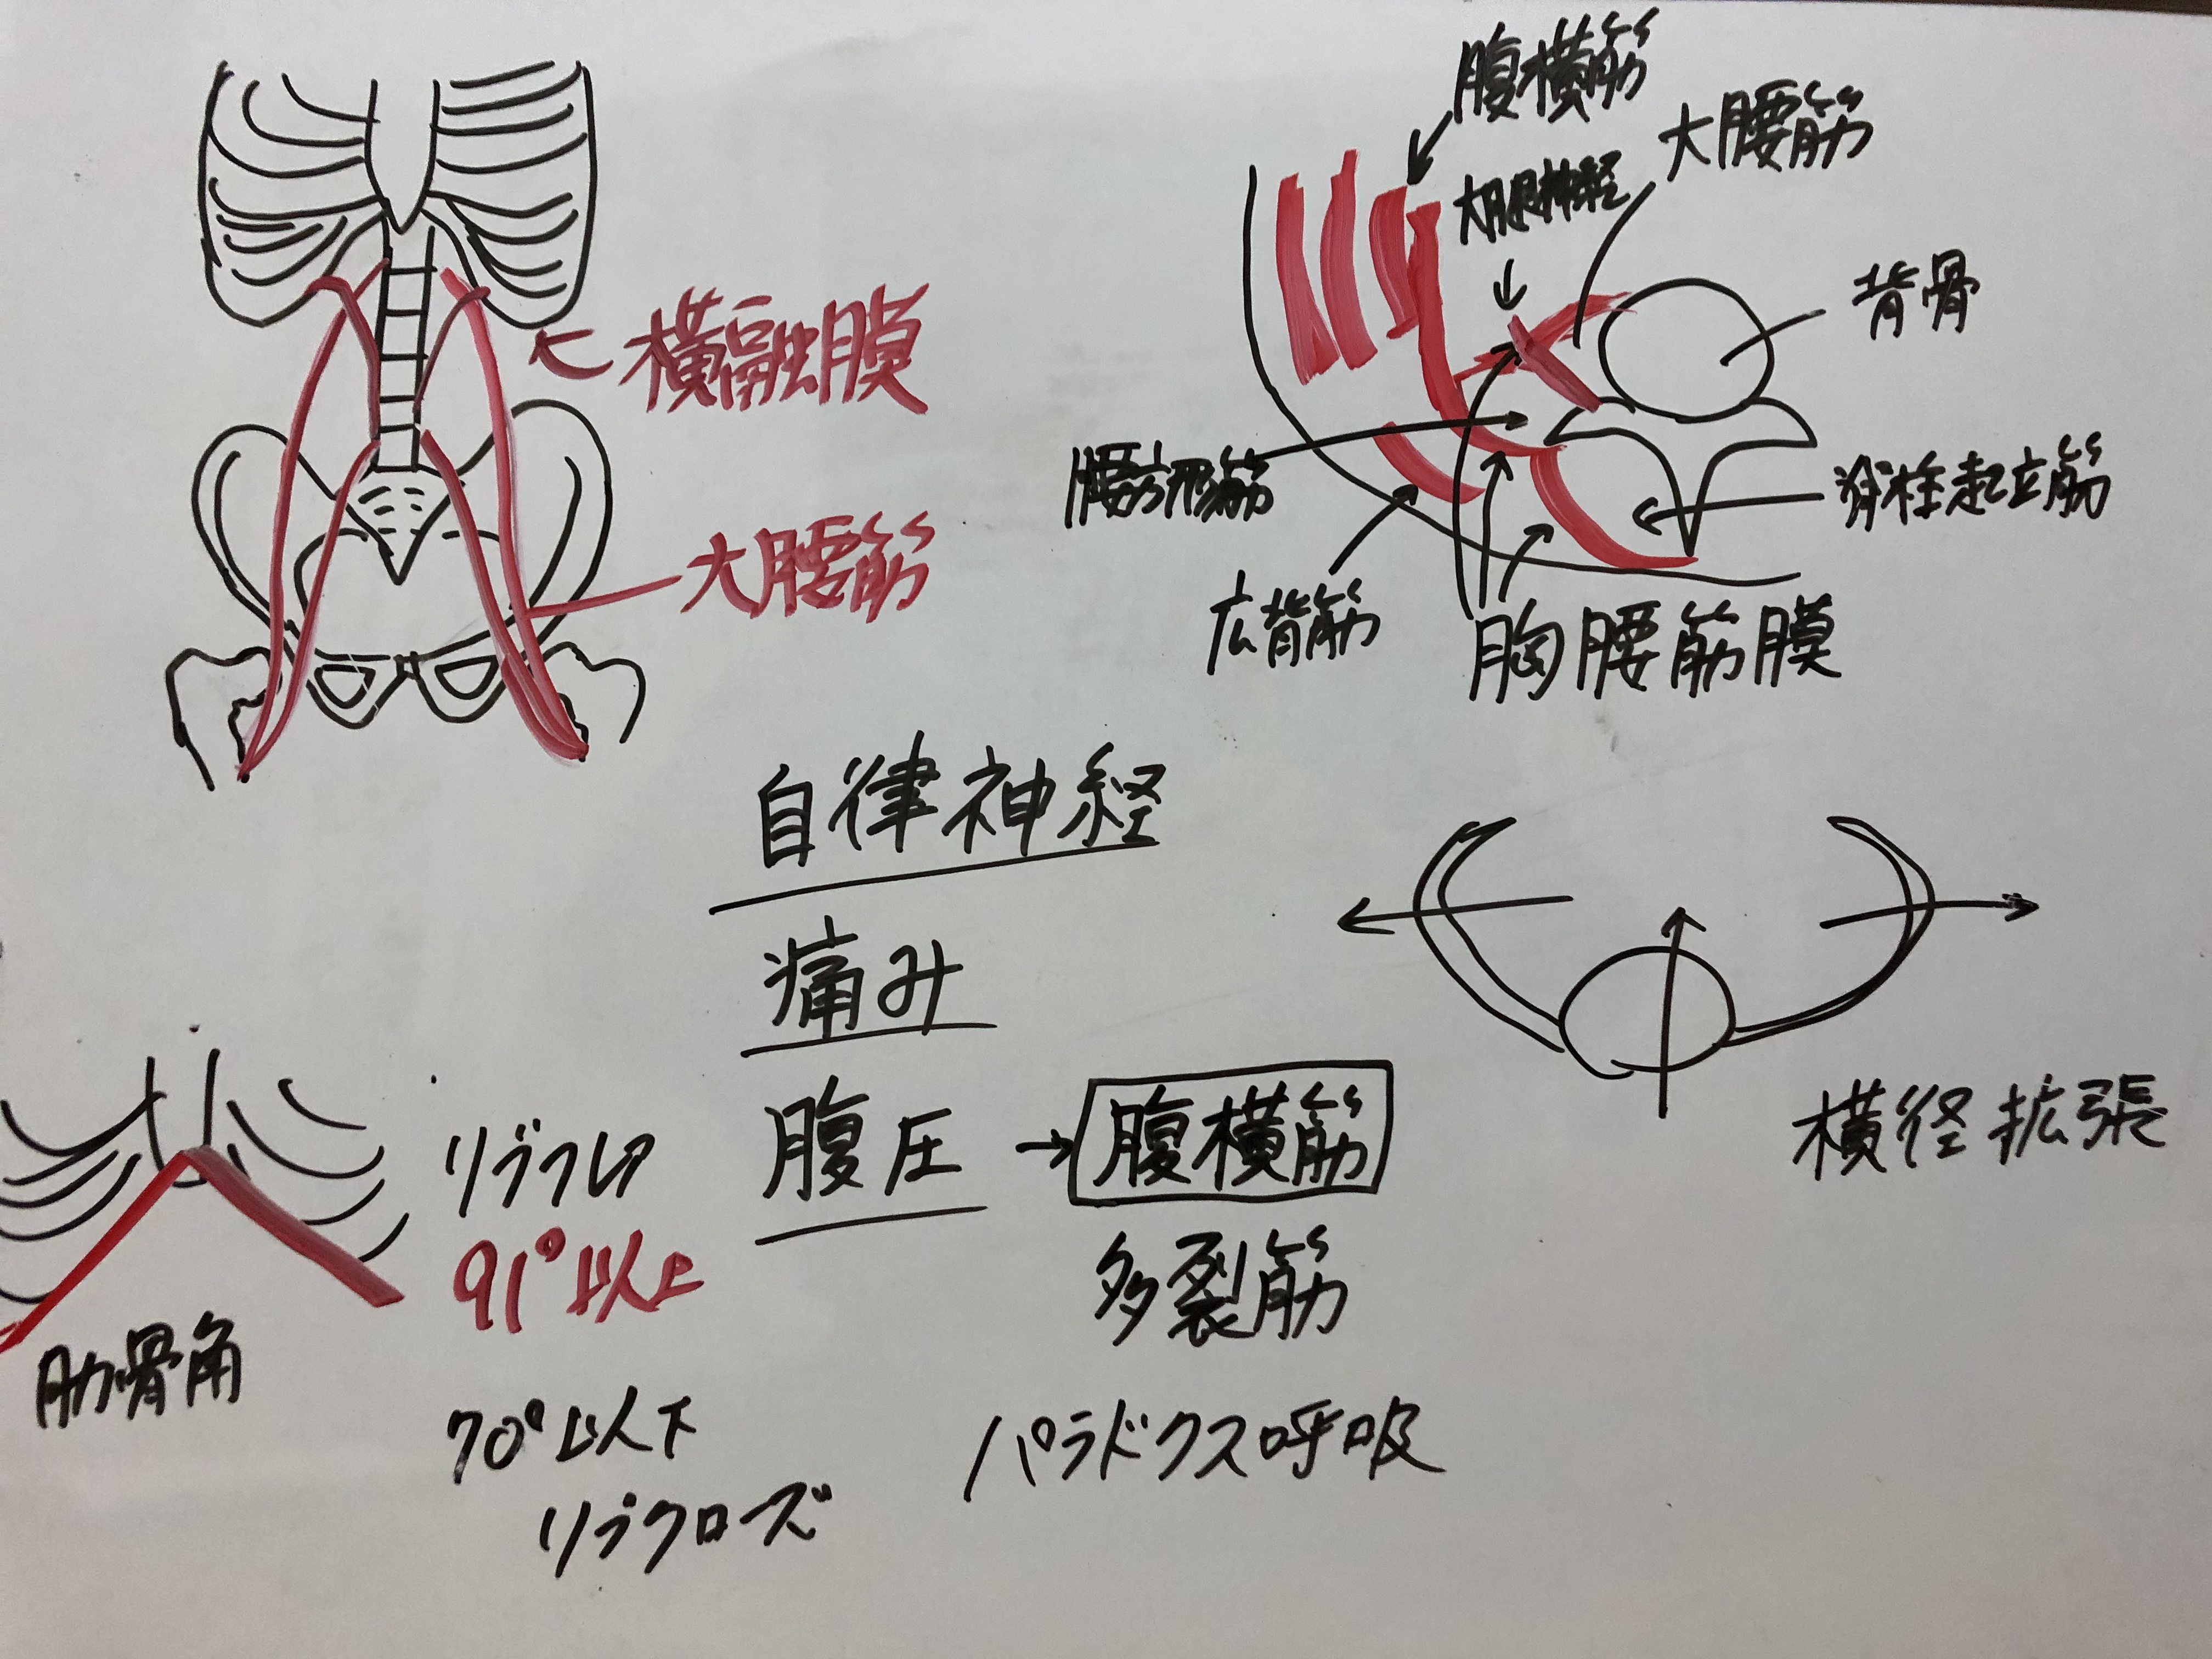 腹横筋
大腰筋
大腿神経
背骨
横融膜
腰方形筋
脊柱起立筋
大腰筋
広背筋
胸腰筋膜
自律神経
痛み
腹圧→腹横筋
横径拡張
リブフレア
91°以上
多裂筋
肋骨角
70°以下
パラドクス呼吸
リブクローズ